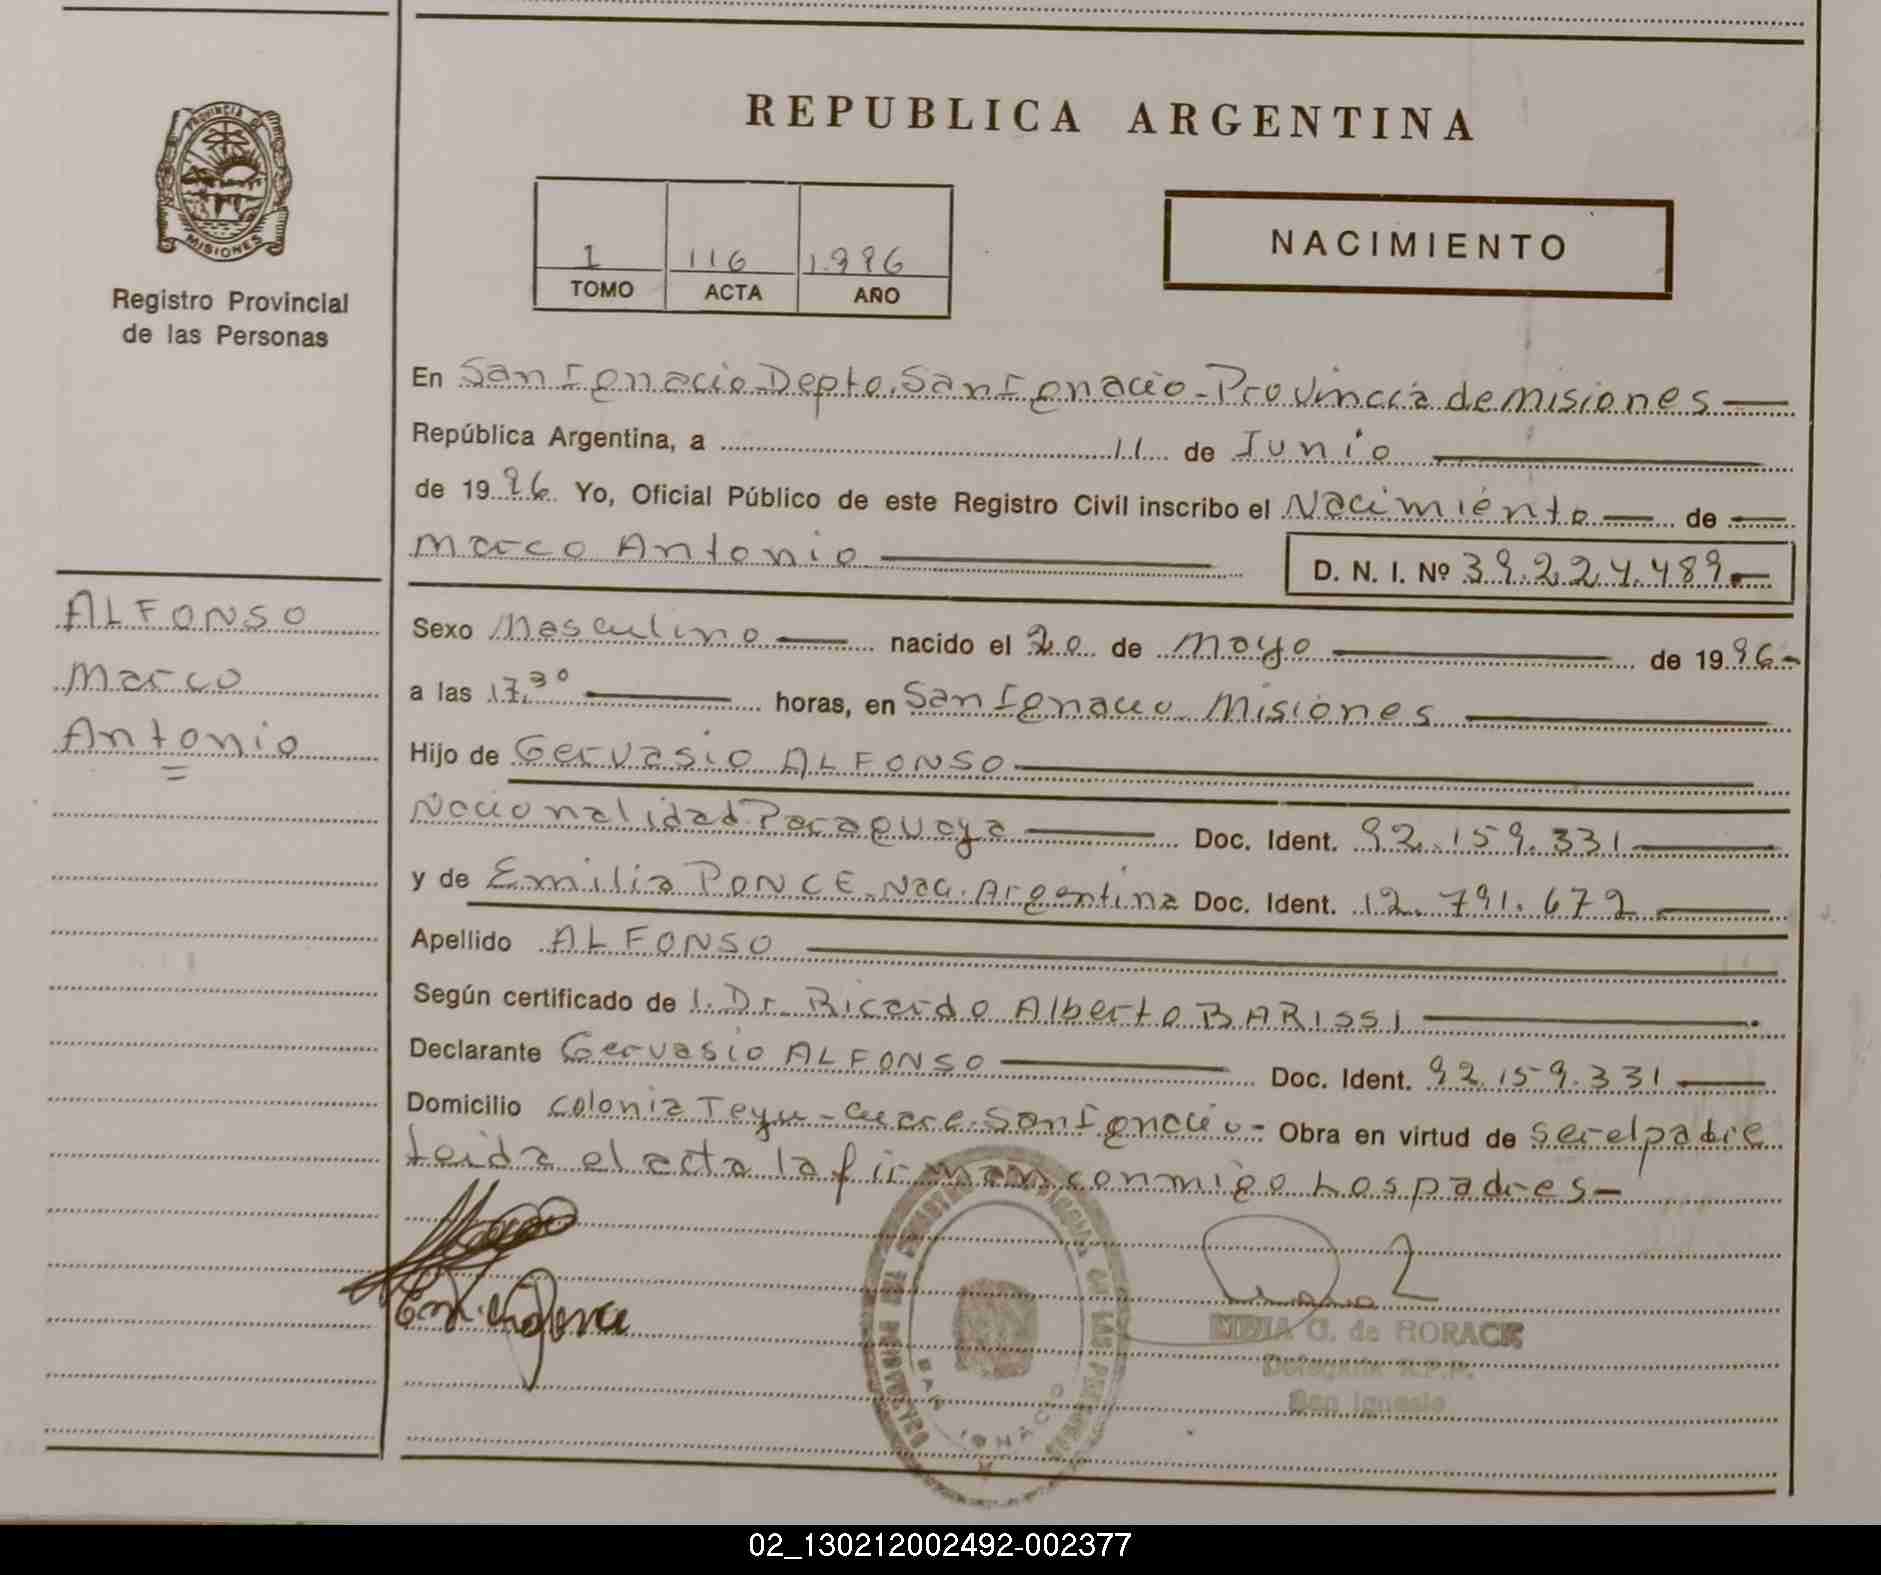 REPUBLICA ARGENTINA
PROVINCIA DE
MISIONES
Registro Provincial
de las Personas
1 116 1.996
TOMO ACTA AÑO
NACIMIENTO
En San Ignacio Depto. San Ignacio - Provincia de misiones
República Argentina, a 11 de Junio
de 1996 Yo, Oficial Público de este Registro Civil inscribo el Nacimiento de
Marco Antonio D. N. I. Nº 39.224.489.-
ALFONSO
Marco
Antonio
Sexo Masculino nacido el 20 de mayo de 1996-
a las 17,30 horas, en San Ignacio Misiones
Hijo de Gervasio ALFONSO
Nacionalidad Paraguaya Doc. Ident. 92.159.331
y de Emilia PONCE. Nac. Argentina Doc. Ident. 12.791.672
Apellido ALFONSO
Según certificado de 1. Dr. Ricardo Alberto BARISSI
Declarante Gervasio ALFONSO Doc. Ident. 92.159.331
Domicilio Colonia Teyu-cuare-San Ignacio- Obra en virtud de ser el padre
Leida el acta la firman conmigo Los padres-
LIDIA G. de HORACK
Delegada R.P.P.
San Ignacio
SAN IGNACIO
02_130212002492-002377